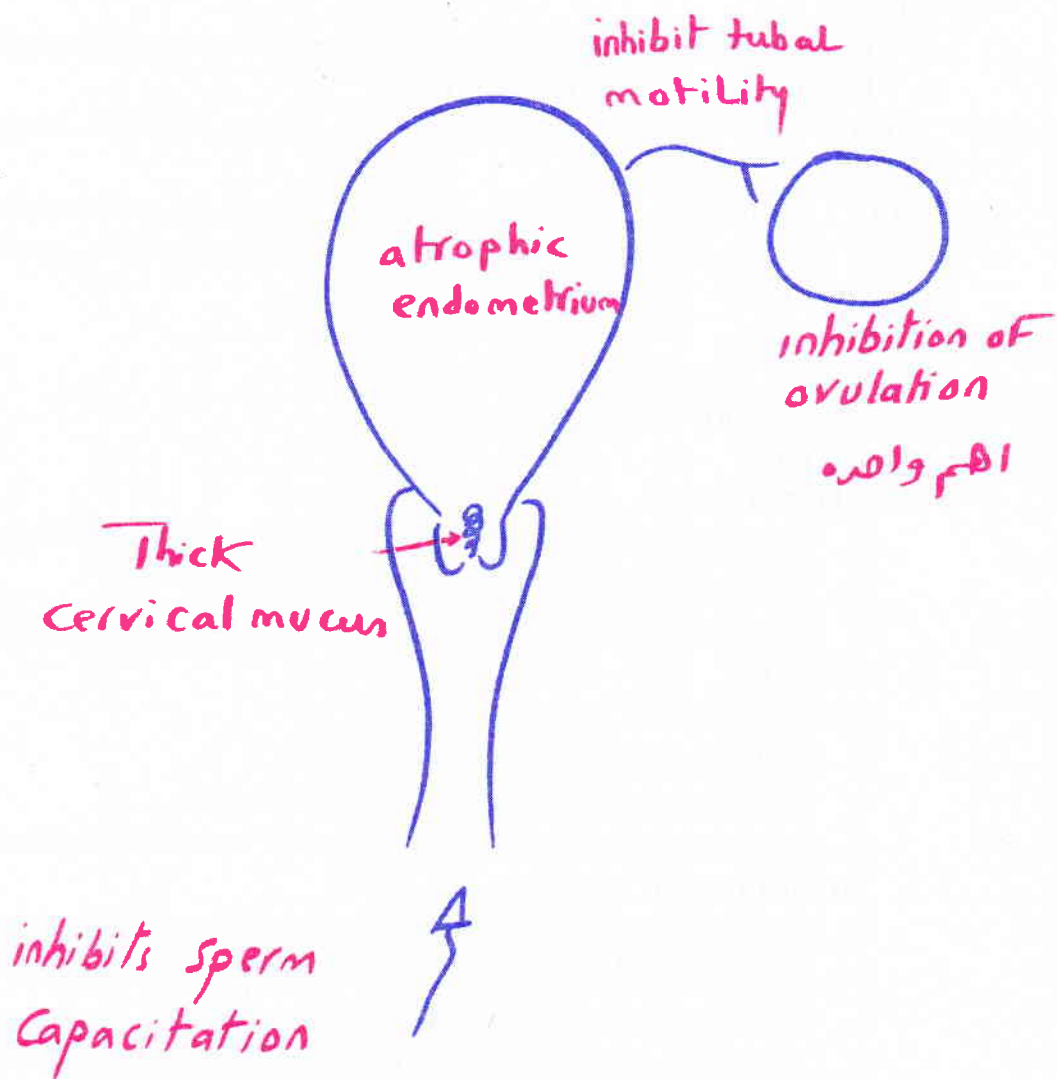 inhibit tubal
motility
atrophic
endometrium
inhibition of
ovulation
اهم واحده
Thick
cervical mucus
inhibits sperm
capacitation